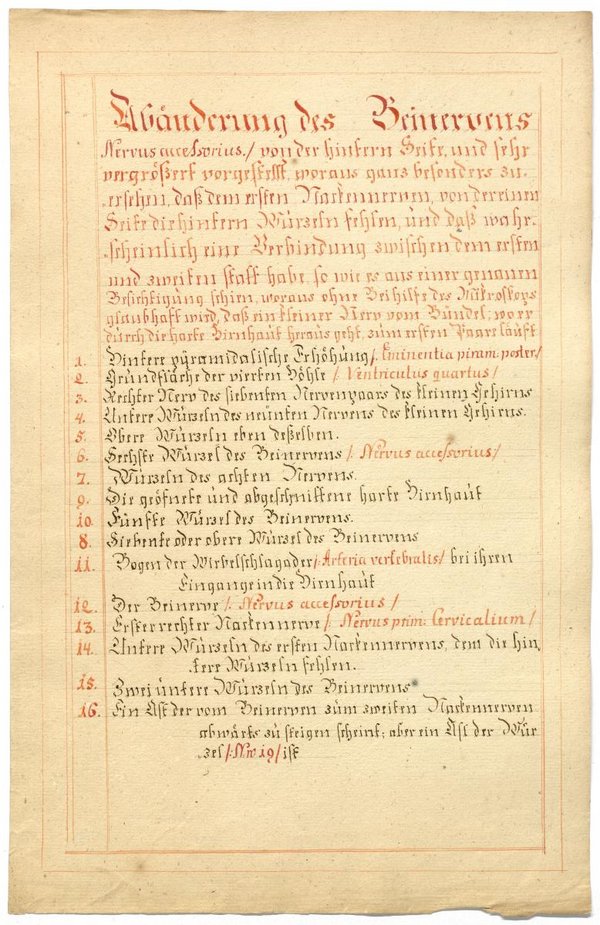 Abänderung des Beinervens
Nervus accessorius./ von der hintern Seite, und sehr
vergrößert vorgestellt, woraus ganz besonders zu
ersehen, daß dem ersten Nackennerven, von der einen
Seite die hintern Würzeln fehlen, und daß wahr-
scheinlich eine Verbindung zwischen dem ersten
und zweiten statt habe, so wie es aus einer genauen
Besichtigung schien, woraus ohne Beihilfe des Mikroskops
glaubhaft wird, daß ein kleiner Nerv vom Bündel, wo er
durch die harte Hirnhaut heraus geht, zum ersten Paare läuft
1. Hintere pyramidalische Erhöhung /: Eminentia piram: poster/
2. Grundfläche der vierten Höhle / Ventriculus quartus/
3. Rechter Nerv des siebenten Nervenpaars des kleinen Gehirns
4. Untere Würzeln des neunten Nervens des kleinen Gehirns.
5. Obere Würzeln eben desselben.
6. Sechste Würzel des Beinervens /: Nervus accessorius/
7. Würzeln des achten Nervens.
9. Die geöfnete und abgeschnittene harte Hirnhaut
10. Fünfte Würzel des Beinervens.
8. Siebente oder obere Würzel des Beinervens
11. Bogen der Wirbelschlagader /: Arteria vertebralis/ bei ihren
Eingange in die Hirnhaut
12. Der Beinerve /: Nervus accessorius/
13. Erster rechter Nackennerve /: Nervus prim: Cervicalium/
14. Untere Würzeln des ersten Nackennervens, dem die hin
tere Würzeln fehlen.
15. Zwei untere Würzeln des Beinervens
16. Ein Ast der vom Beinerven zum zweiten Nackennerven
abwärts zu steigen scheint; aber ein Ast der Wür
zel /: Nro 19/ ist